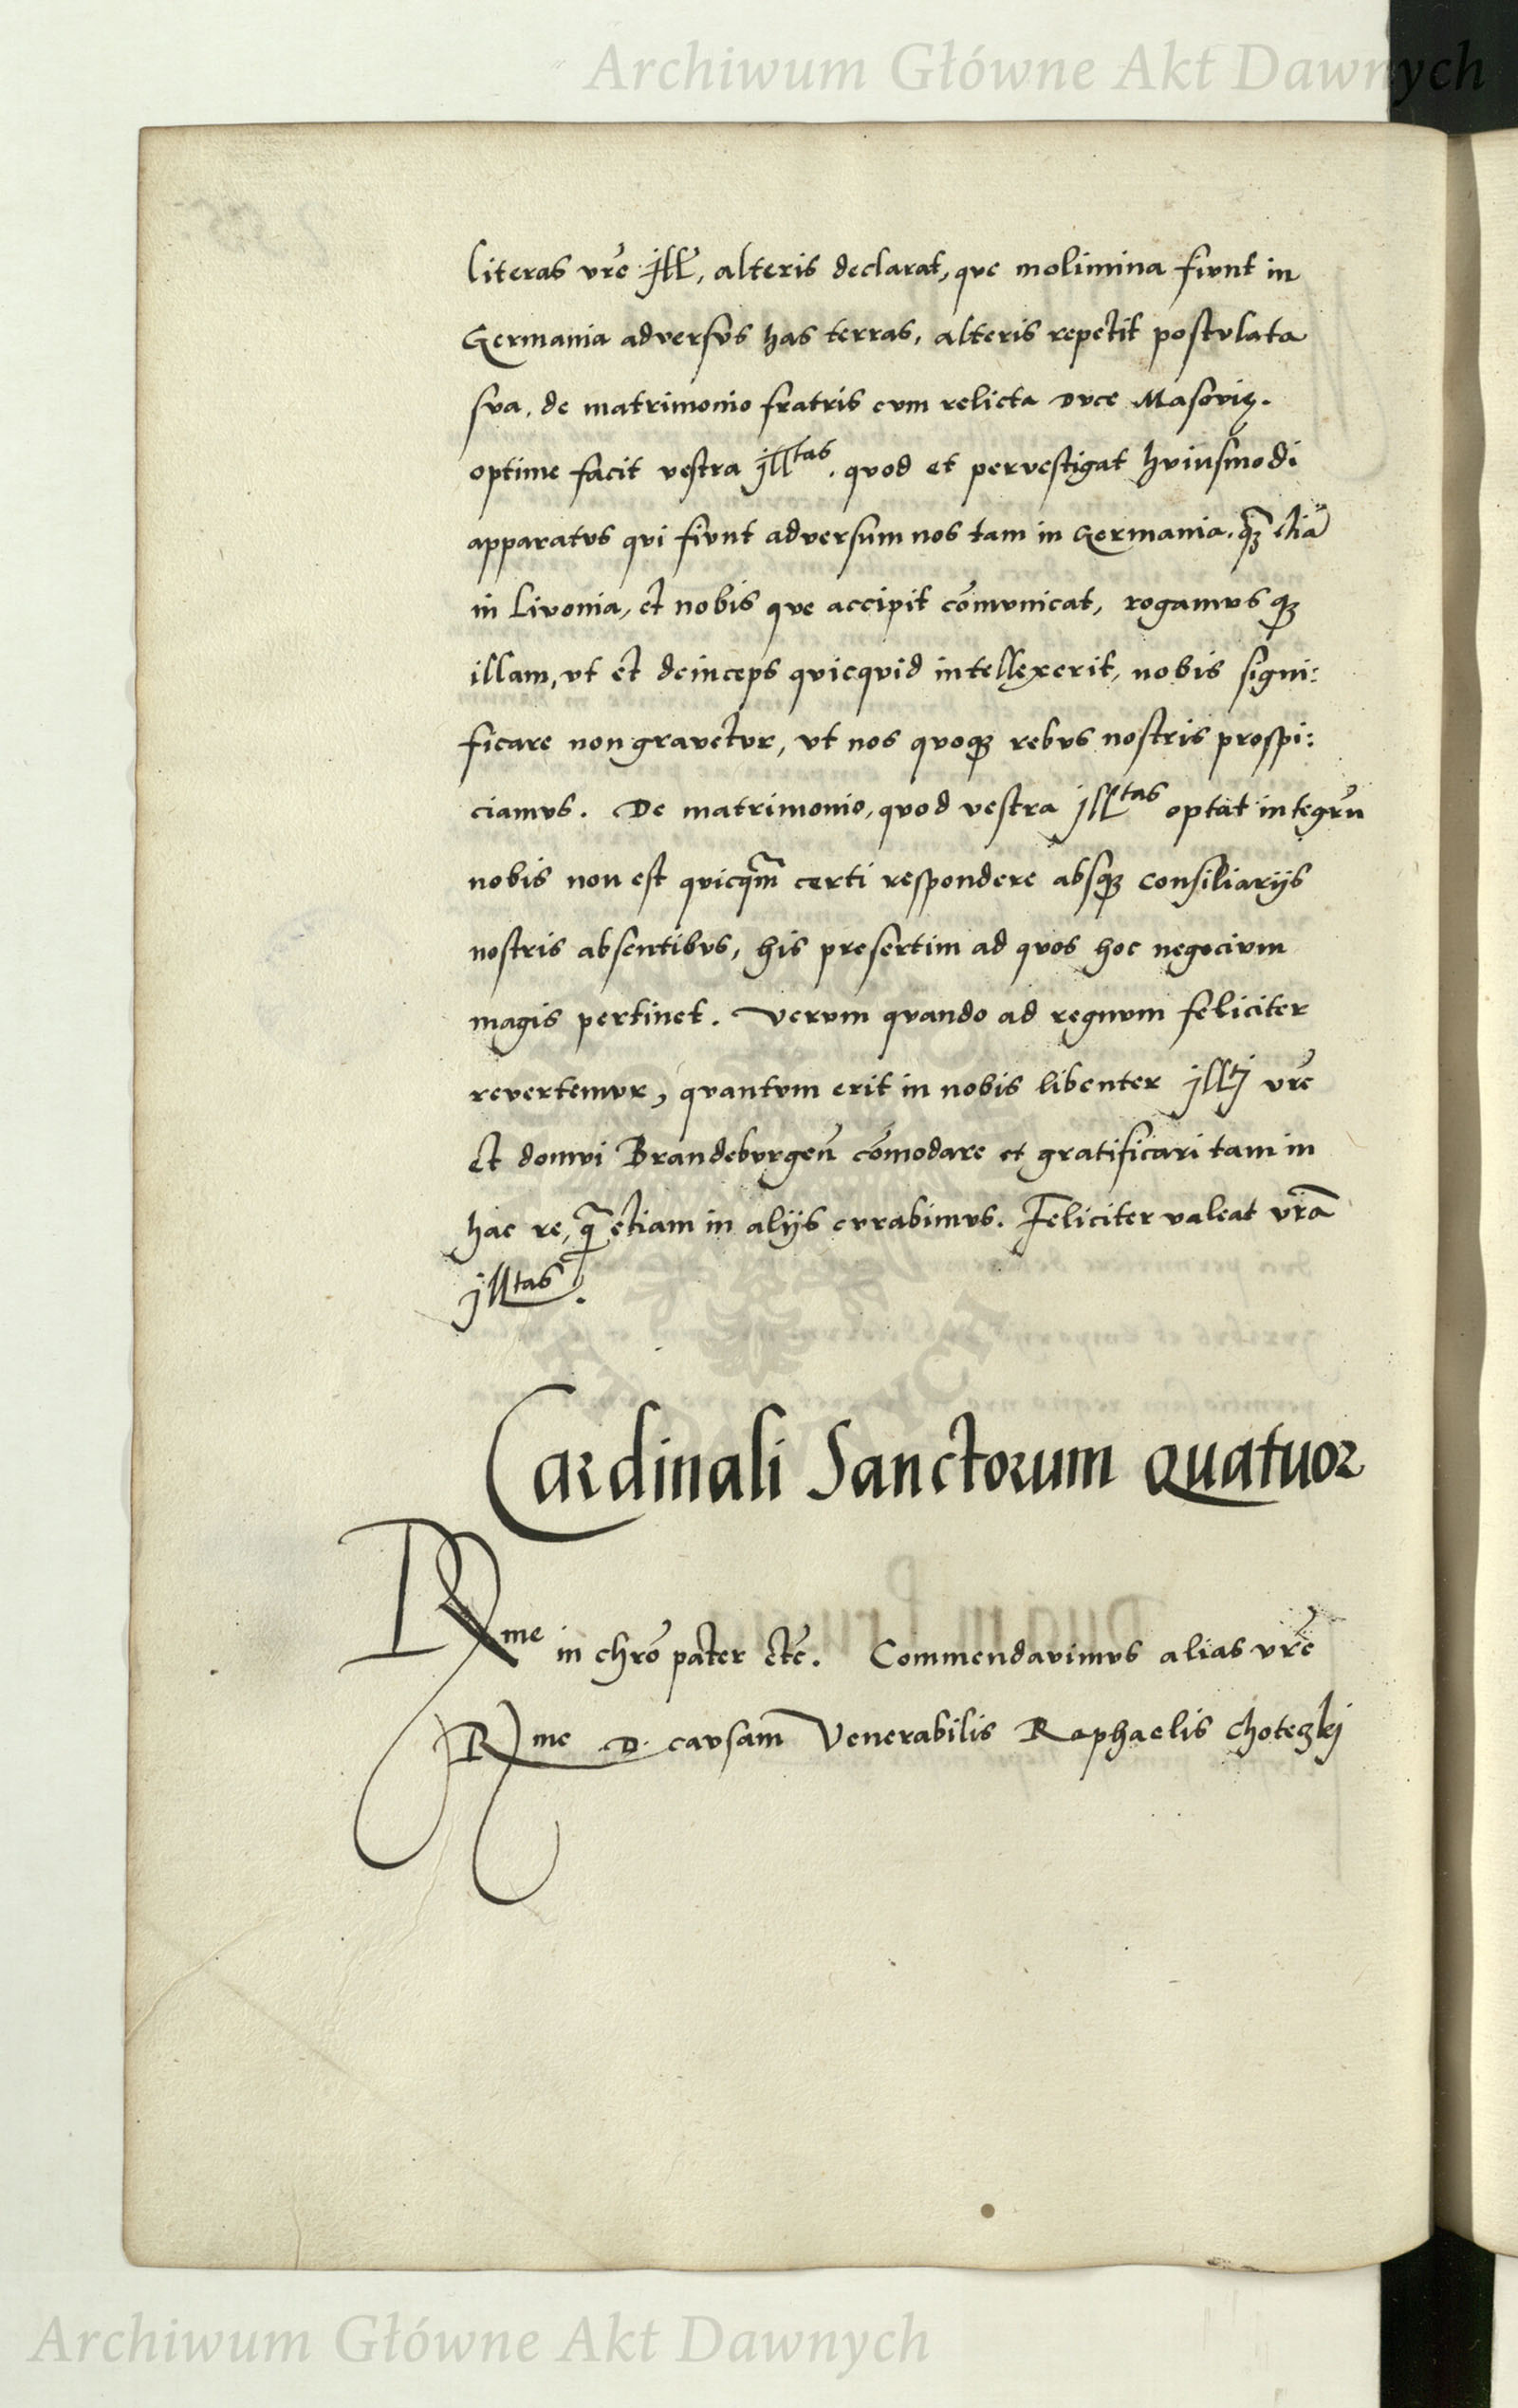 Archiwum Główne Akt Dawnych
literas vrẽ Jll̃, alteris declarat, que molimina fiunt in
Germania adversus has terras, alteris repetit postulata
sua, de matrimonio fratris cum relicta Duce Masovię.
optime facit vestra Jlltas. quod et pervestigat huiusmodi
apparatus qui fiunt adversum nos tam in Germania. qȝ̃ etiã
in Livonia, et nobis que accipit cõmunicat, rogamus qȝ
illam, ut et deinceps quicquid intellexerit, nobis signi:
ficare non gravetur, ut nos quoqȝ rebus nostris prospi:
ciamus. De matrimonio, quod vestra Jlltas optat integrũ
nobis non est quicqm̃ certi respondere absqȝ consiliarijs
nostris absentibus, his presertim ad quos hoc negocium
magis pertinet. Verum quando ad regnum feliciter
revertemur, quantum erit in nobis libenter Jlltj vrẽ
et domui Brandeburgeñ cõmodare et gratificari tam in
hac re, q̃ etiam in alijs curabimus. Feliciter valeat vrã
Jlltas.
Cardinali Sanctorum Quatuor
Rme in chrõ pater etc̃. Commendavimus alias vrẽ
Rme D. causam Venerabilis Raphaelis Choteczkj
Archiwum Główne Akt Dawnych